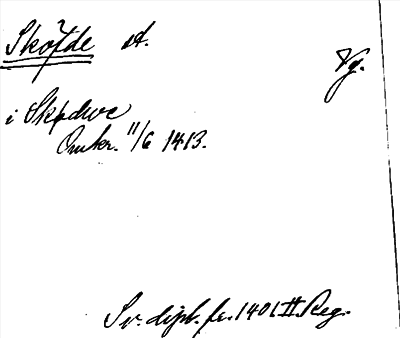 Skövde st. Vg.
i Skødwe
Omkr. 11/6 1413.
Sv. dipl. fr. 1401 II. Reg.